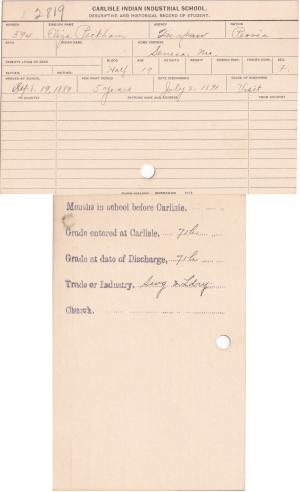 2819
CARLISLE INDIAN INDUSTRIAL SCHOOL.
DESCRIPTIVE AND HISTORICAL RECORD OF STUDENT.
NUMBER ENGLISH NAME AGENCY NATION
394 Eliza Peckham Quapaw Peoria
BAND INDIAN NAME HOME ADDRESS
Seneca, Mo.
PARENTS LIVING OR DEAD BLOOD AGE HEIGHT WEIGHT FORCED INSP. FORCED EXPR. SEX
FATHER MOTHER Half 19 F.
ARRIVED AT SCHOOL FOR WHAT PERIOD DATE DISCHARGED CAUSE OF DISCHARGE
Sept. 19, 1889 5 years July 2, 1891 Visit
TO COUNTRY PATRONS NAME AND ADDRESS FROM COUNTRY
Months in school before Carlisle.
Grade entered at Carlisle, 7th
Grade at date of Discharge, 7th
Trade or Industry. Sewg & Ldry
Church.